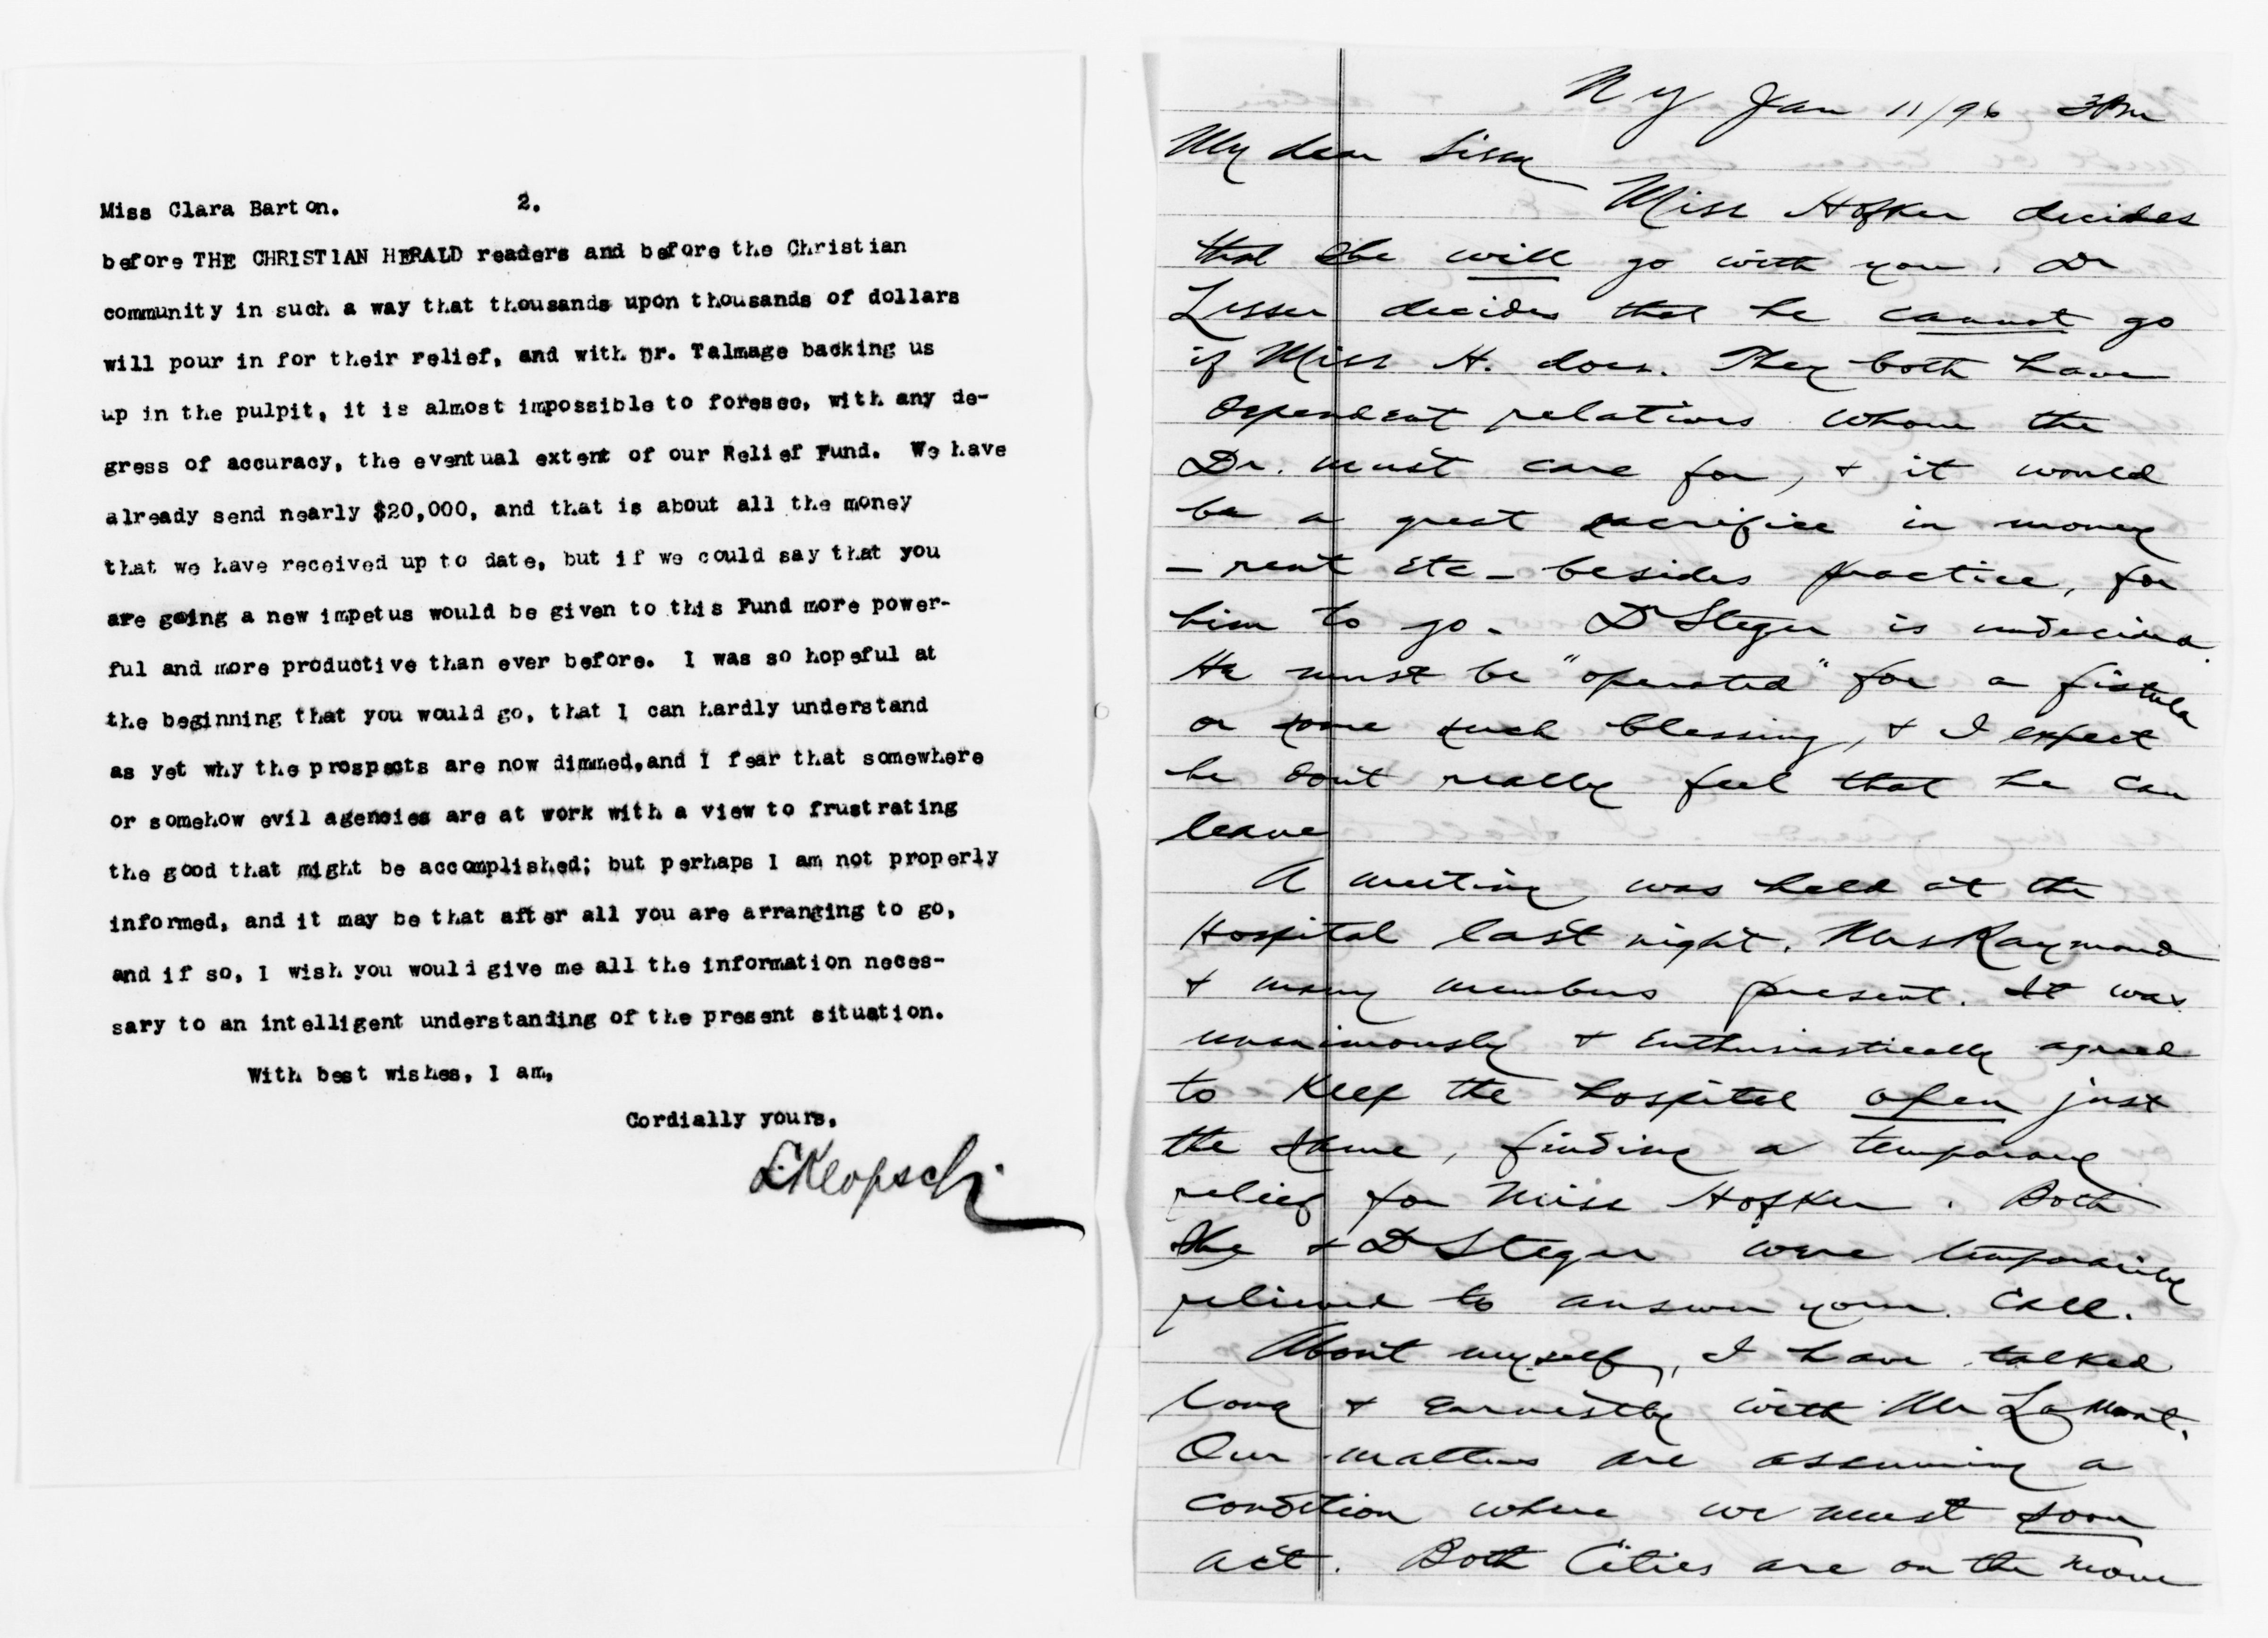 Miss Clara Barton. 2.
before THE CHRISTIAN HERALD readers and before the Christian
community in such a way that thousands upon thousands of dollars
will pour in for their relief, and with Dr. Talmage backing us
up in the pulpit, it is almost impossible to foresee, with any de-
gress of accuracy, the eventual extent of our Relief Fund. We have
already send nearly $20,000, and that is about all the money
that we have received up to date, but if we could say that you
are going a new impetus would be given to this Fund more power-
ful and more productive than ever before. I was so hopeful at
the beginning that you would go, that I can hardly understand
as yet why the prospects are now dimmed,and I fear that somewhere
or somehow evil agencies are at work with a view to frustrating
the good that might be accomplished; but perhaps I am not properly
informed, and it may be that after all you are arranging to go,
and if so, I wish you would give me all the information neces-
sary to an intelligent understanding of the present situation.
With best wishes, I am,
Cordially yours,
L Klopsch
N Y Jan 11/96 3 Pm
My dear Sissy
Miss Hofker decides
that she will go with you. Dr
Lesser decides that he cannot go
if Miss H. does. They both have
dependent relatives whom the
Dr. must care for, & it would
be a great sacrifice in money
- rent etc - besides practice, for
him to go. Dr Steger is undecided.
He must be "operated" for a fistula
or some such blessing, & I expect
he dont really feel that he can
leave
A meeting was held at the
Hospital last night. Mrs Raymond
& many members present. It was
unanimously & enthusiastically agreed
to keep the hospital open just
the same, finding a temporary
relief for Miss Hofker. Both
she & Dr Steger were temporarily
relieved to answer your call.
About myself, I have talked
long & earnestly with Mr LaMont.
Our matters are assuming a
condition where we must soon
act. Both Cities are on the move